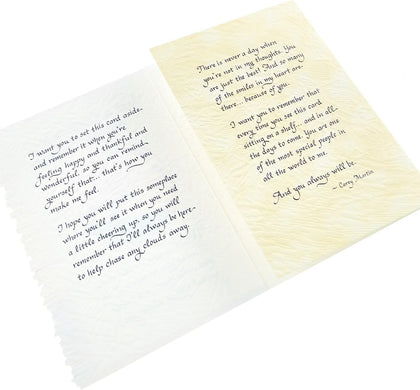 I want you to set this card aside-
and remember it when you're
feeling happy and thankful and
wonderful, so you can remind-
yourself that... that's how you
make me feel.
I hope you will put this someplace
where you'll see it when you need
a little cheering up, so you will
remember that I'll always be here-
to help chase any clouds away.
There is never a day when
you're not in my thoughts. You
are just the best! And so many
of the smiles in my heart are-
there... because of you.
I want you to remember that
every time you see this card
sitting on a shelf... and in all-
the days to come. You are one
of the most special people in
all the world to me.
And you always will be.
- Carey Martin